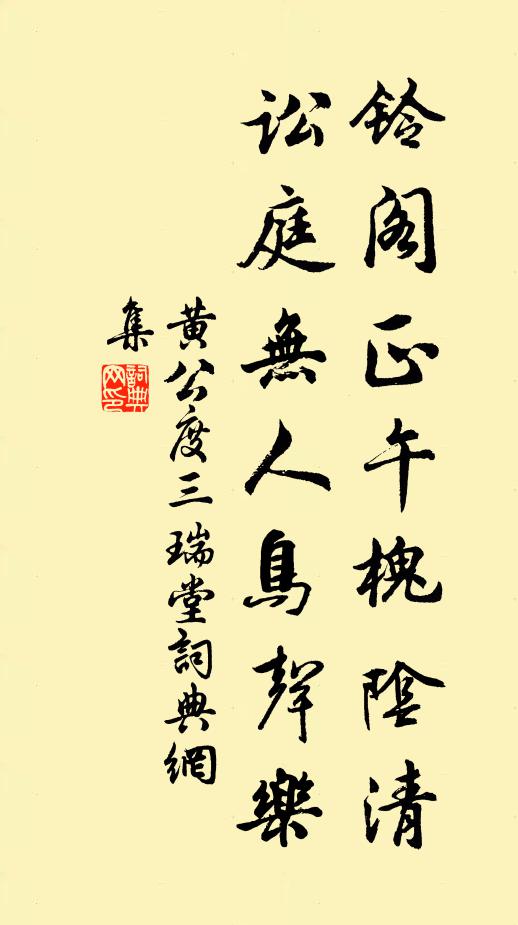 鈴閣正午槐陰清
訟庭無人鳥聲樂
黃公度三瑞堂詞典網
集
詞典網印